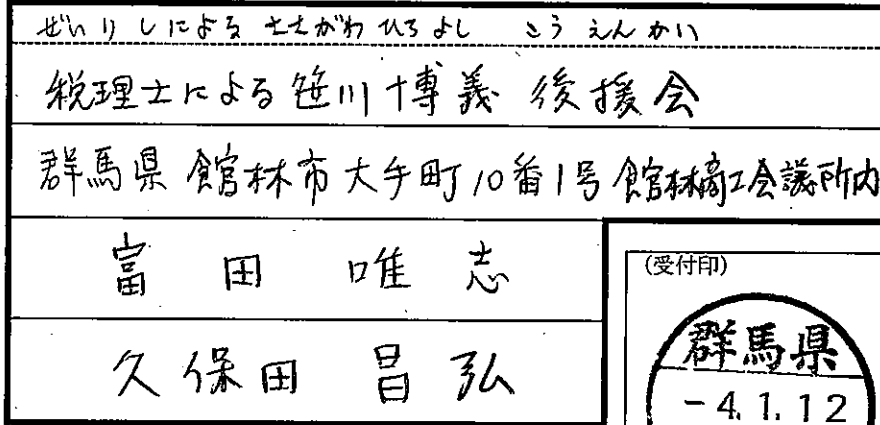 ぜいりしによる ささがわひろよし こうえんかい
税理士による笹川博義 後援会
群馬県 館林市大手町10番1号 館林商工会議所内
富田 唯志
久保田 昌弘
(受付印)
群馬県
-4.1.12